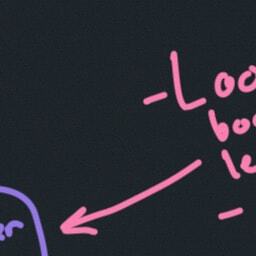 - Loo
boo
le
-
er